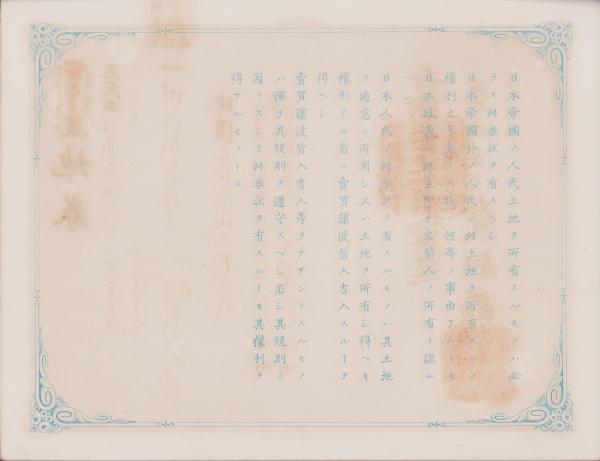 日本帝國ノ人民土地ヲ所有スルモノハ必
ラス此券狀ヲ有スヘシ
日本帝國外ノ人民ハ此土地ヲ所有スルノ
權利ナキ者トス故ニ何等ノ事由アルトモ
日本政府ハ地主即チ名前人ノ所有ト認ム
ヘシ
日本人民ノ此券狀ヲ有スルモノハ其土地
ヲ適意ニ所用シ又ハ土地ヲ所有シ得ヘキ
權利アル者ニ賣買讓渡質入書入スルヿヲ
得ヘシ
賣買讓渡質入書入等ヲナサントスルモノ
ハ渾テ其規則ヲ遵守スヘシ若シ其規則ニ
因ラスシテ此券狀ヲ有スルトモ其權利ヲ
得サルモノトス
地券